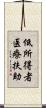 低所得者
医療扶助